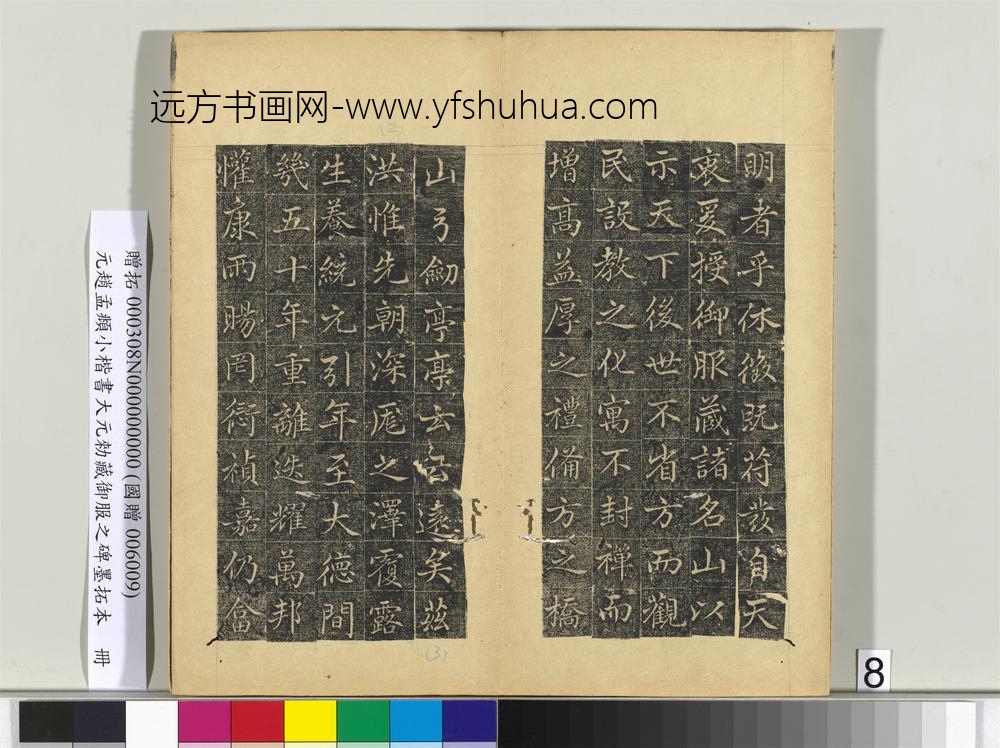 远方书画网-www.yfshuhua.com
明者乎休徵既苻發自天
衷爰授御服藏諸名山以
示天下後世不省方而觀
民設教之化寓不封禅而
增高益厚之禮俻方之橋
山弓劒亭亭云云遠矣茲
洪惟先朝深厖之澤霶露
生養統元引年至大德間
幾五十年重離迭耀萬邦
懽康雨暘罔愆禎嘉仍畬
贈拓 000308N000000000 (國贈 006009)
元趙孟頫小楷書大元勑藏御服之碑墨拓本 冊
(2)
(3)
8